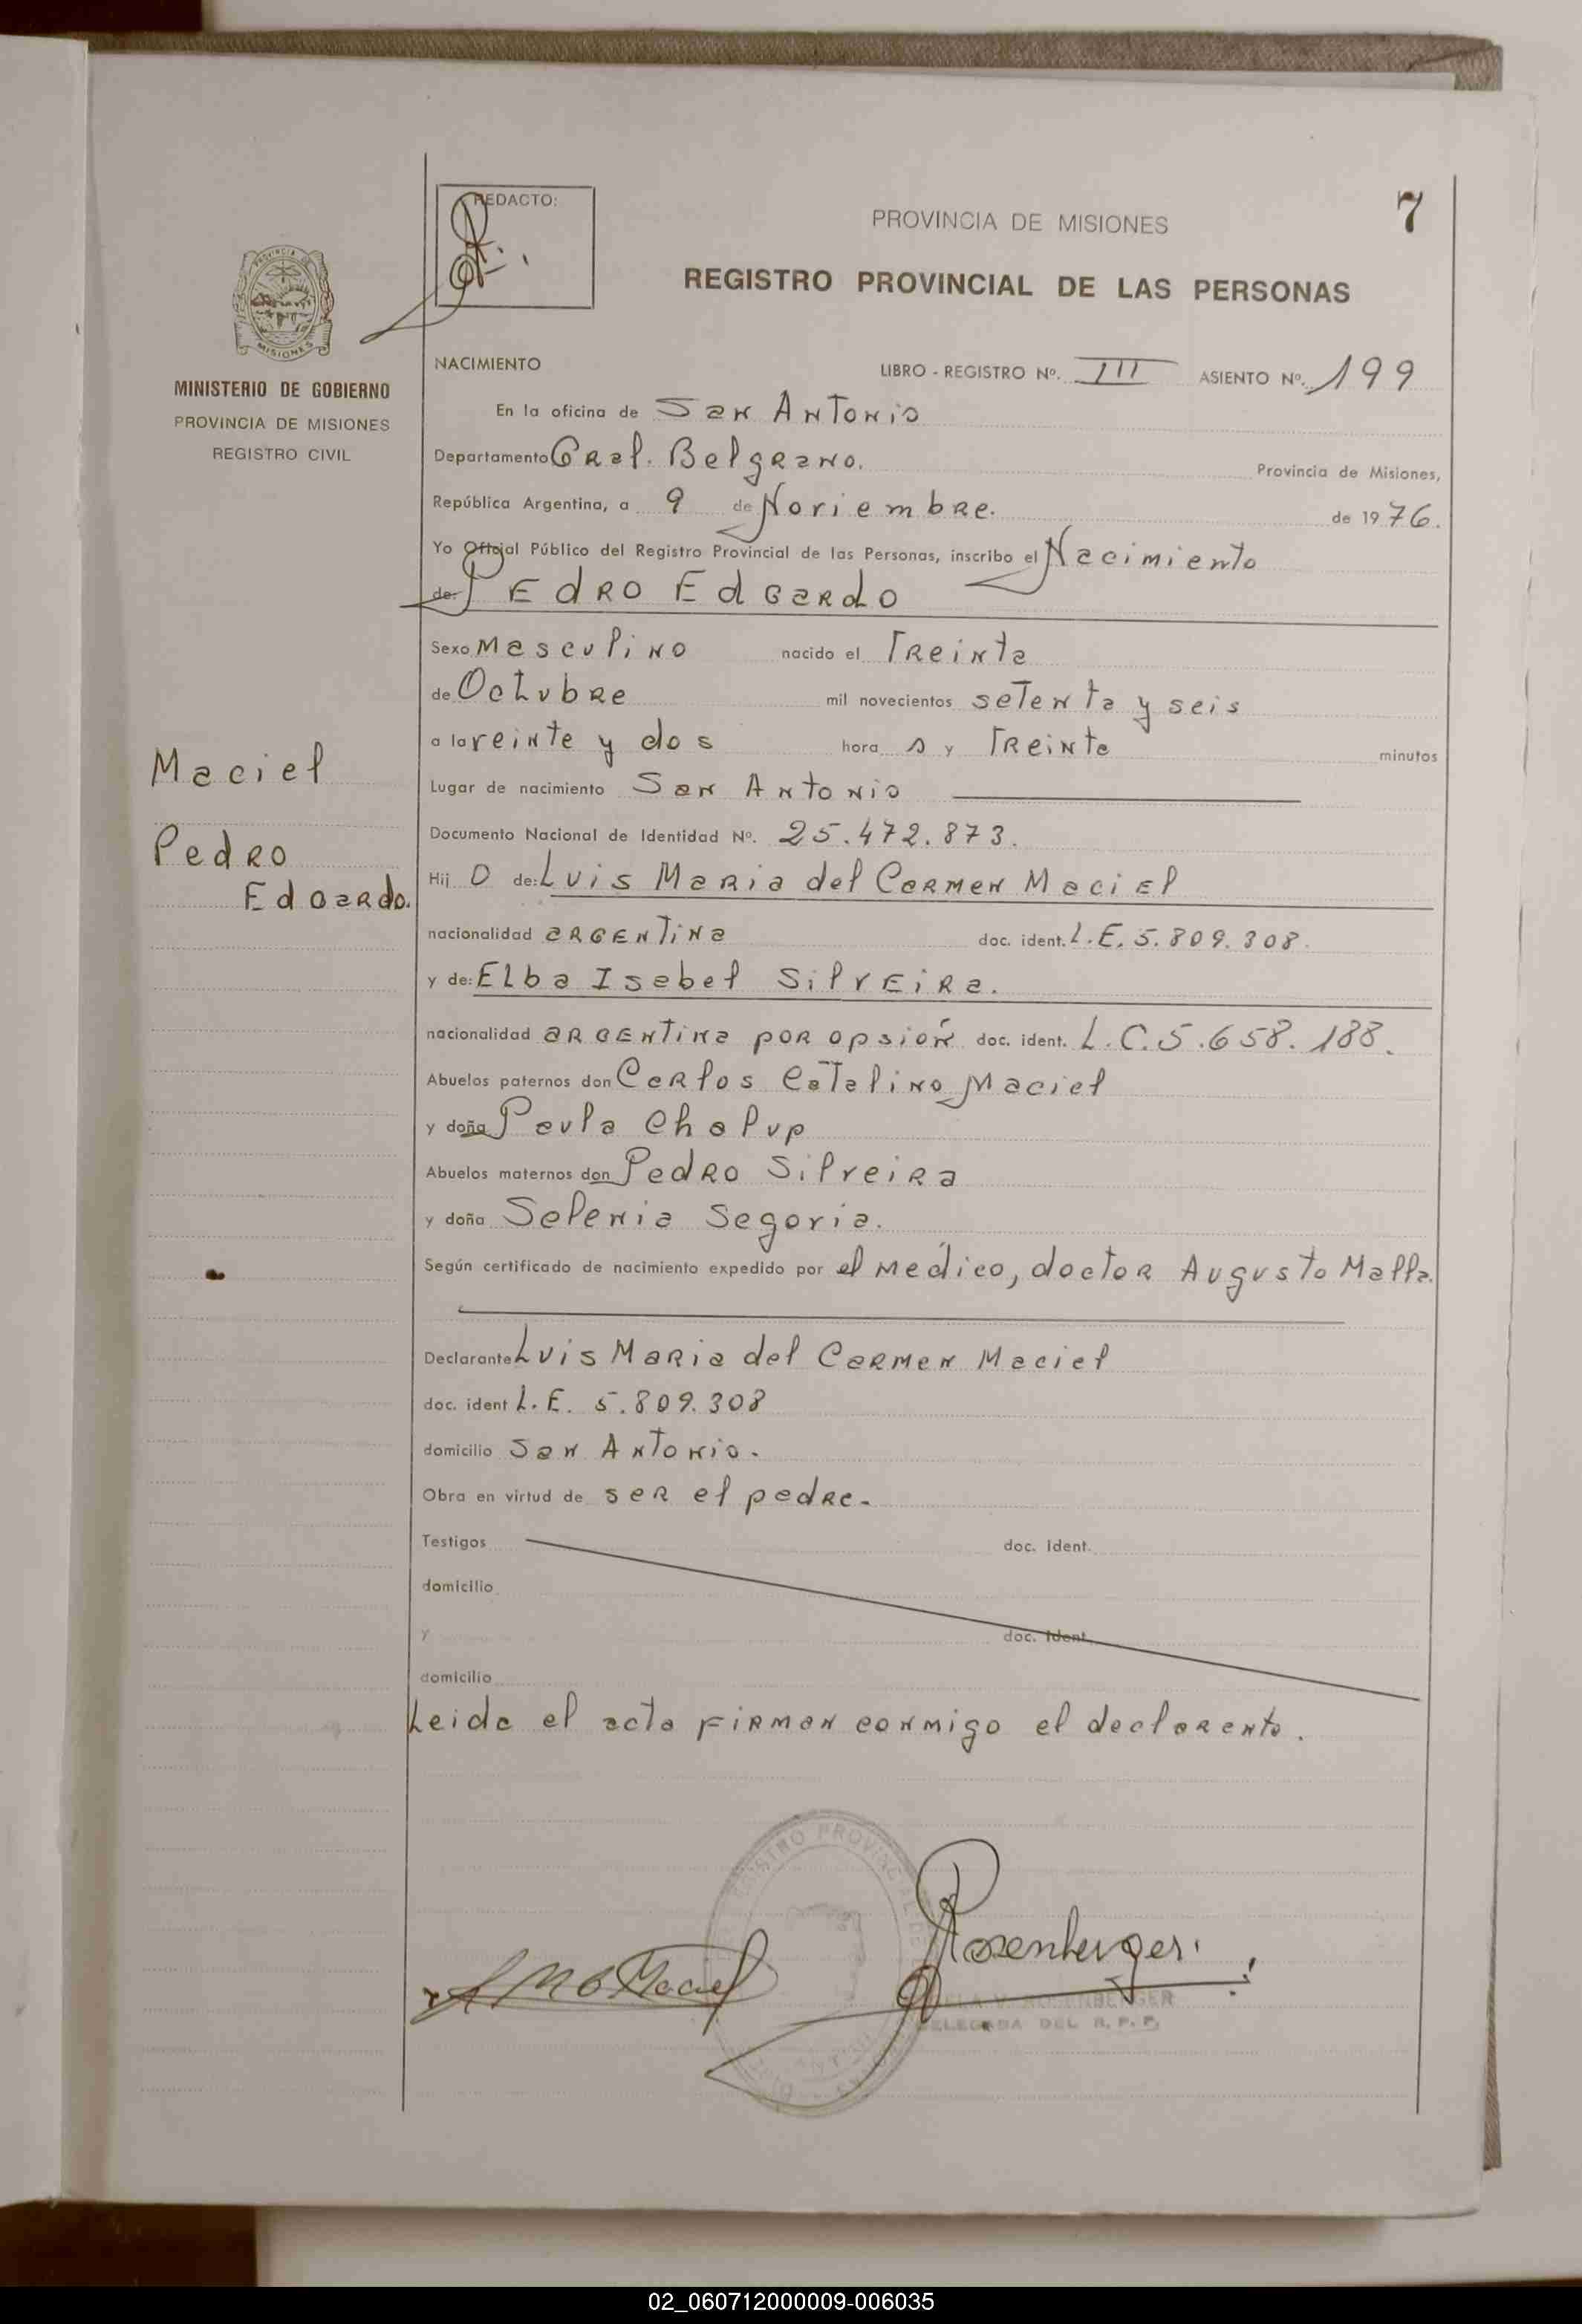 REDACTO:
PROVINCIA DE MISIONES
7
REGISTRO PROVINCIAL DE LAS PERSONAS
PROVINCIA DE
MISIONES
MINISTERIO DE GOBIERNO
PROVINCIA DE MISIONES
REGISTRO CIVIL
NACIMIENTO LIBRO - REGISTRO Nº. III ASIENTO Nº. 199
En la oficina de San Antonio
Departamento Gral. Belgrano. Provincia de Misiones,
República Argentina, a 9 de Noviembre. de 1976.
Yo Oficial Público del Registro Provincial de las Personas, inscribo el Nacimiento
de: PEdRO EdGardO
Sexo Masculino nacido el Treinta
de Octubre mil novecientos setenta y seis
a la veinte y dos hora s y Treinta minutos
Lugar de nacimiento San Antonio
Maciel
Pedro
Edgardo.
Documento Nacional de Identidad Nº. 25.472.873.
Hij O de: Luis Maria del Carmen Maciel
nacionalidad argentina doc. ident. L.E. 5.809.308.
y de: Elba Isabel Silveira.
nacionalidad argentina por opsión doc. ident. L.C. 5.658.188.
Abuelos paternos don Carlos Catalino Maciel
y doña Paula Chalup
Abuelos maternos don Pedro Silveira
y doña Selenia Segovia.
Según certificado de nacimiento expedido por el médico, doctor Augusto Malla.
Declarante Luis Maria del Carmen Maciel
doc. ident L.E. 5.809.308
domicilio San Antonio.
Obra en virtud de ser el padre.
Testigos doc. ident.
domicilio
y doc. ident.
domicilio
Leida el acta firman conmigo el declarante.
REGISTRO PROVINCIAL
L M C Maciel
Rosenberger
ROSENBERGER
DELEGADA DEL R. P. P.
02_060712000009-006035